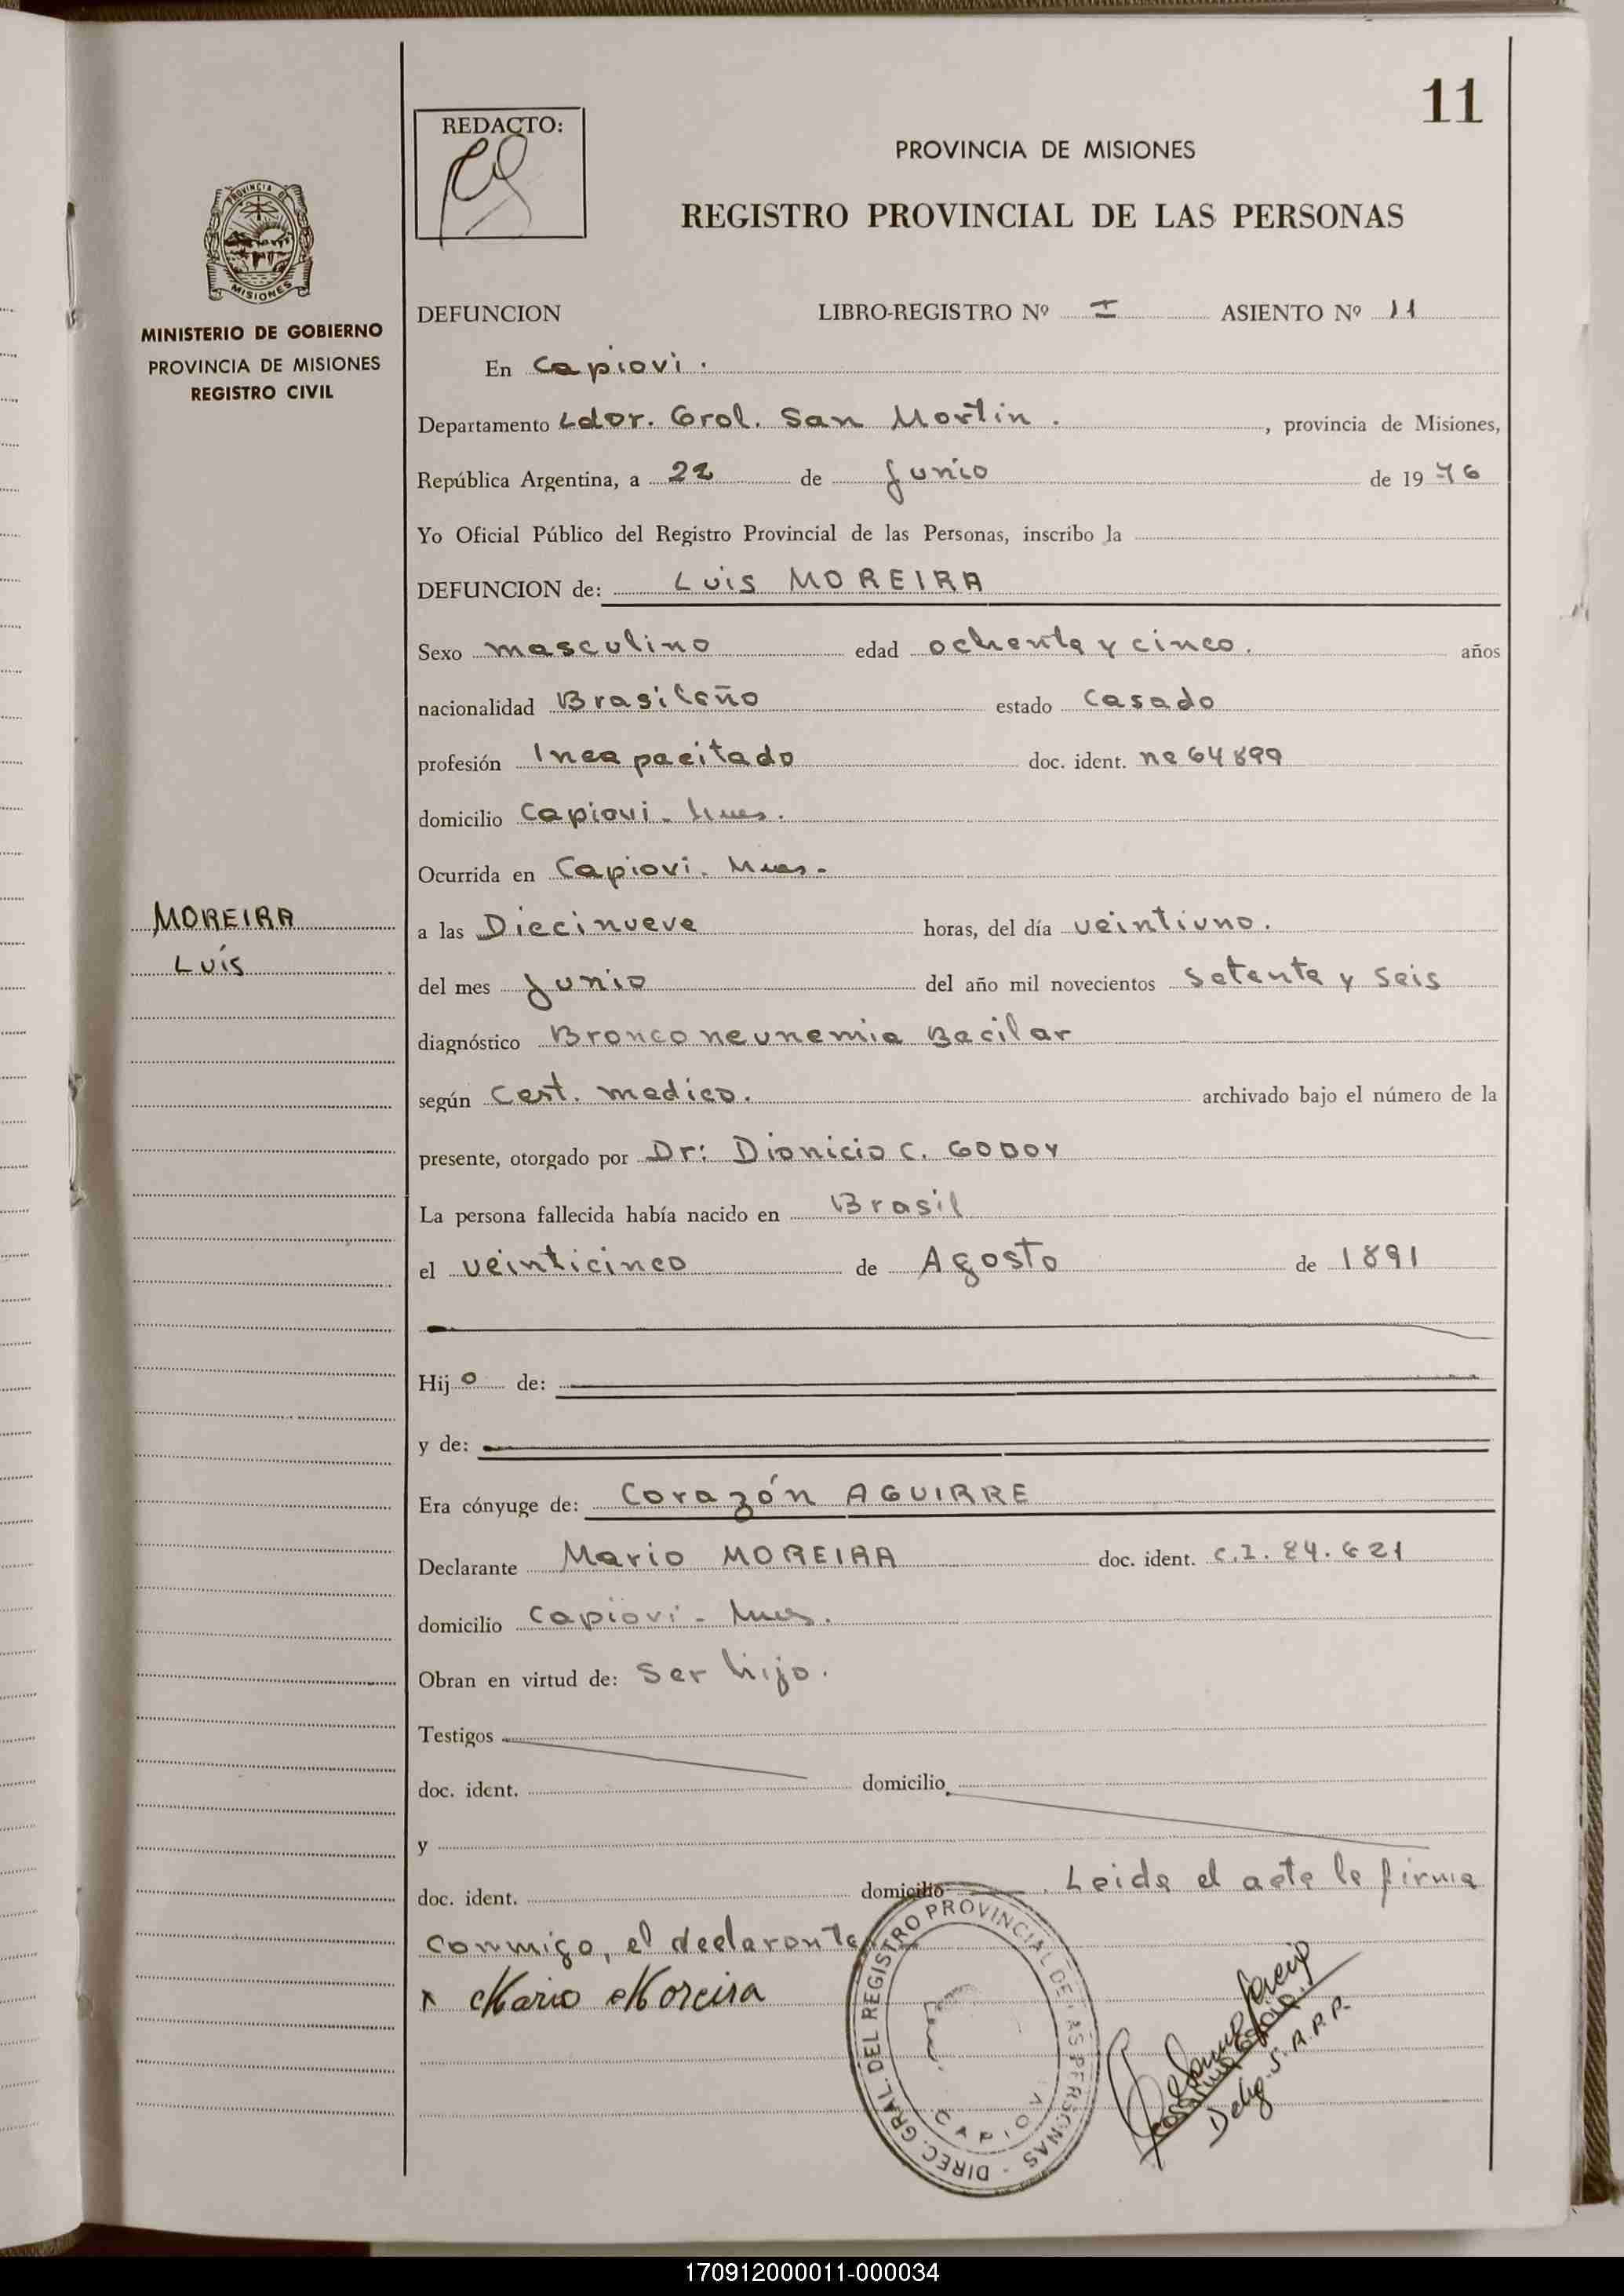 11
REDACTO:
PROVINCIA DE MISIONES
REGISTRO PROVINCIAL DE LAS PERSONAS
PROVINCIA DE MISIONES
MINISTERIO DE GOBIERNO
PROVINCIA DE MISIONES
REGISTRO CIVIL
DEFUNCION LIBRO-REGISTRO Nº I ASIENTO Nº 11
En Capiovi.
Departamento Ldor. Gral. San Martin. , provincia de Misiones,
República Argentina, a 22 de Junio de 19 76
Yo Oficial Público del Registro Provincial de las Personas, inscribo la
DEFUNCION de: Luis MOREIRA
Sexo masculino edad ochenta y cinco. años
nacionalidad Brasileño estado Casado
profesión Incapacitado doc. ident. nº 64899
domicilio Capiovi - Mnes.
Ocurrida en Capiovi. Mnes.
MOREIRA
Luis
a las Diecinueve horas, del día veintiuno.
del mes Junio del año mil novecientos Setenta y Seis
diagnóstico Bronconeunemia Bacilar
según Cert. medico. archivado bajo el número de la
presente, otorgado por Dr: Dionicio C. GODOY
La persona fallecida había nacido en Brasil
el veinticinco de Agosto de 1891
Hij o de:
y de:
Era cónyuge de: Corazón AGUIRRE
Declarante Mario MOREIRA doc. ident. C.I. 84.621
domicilio Capiovi - Mnes.
Obran en virtud de: Ser hijo.
Testigos
doc. ident. domicilio
y
doc. ident. domicilio . Leida el acta la firma
conmigo, el declarante
x Mario Moreira
DIREC. GRAL. DEL REGISTRO PROVINCIAL DE LAS PERSONAS -
CAPIOVI
Deleg. S. A. R. P.
170912000011-000034